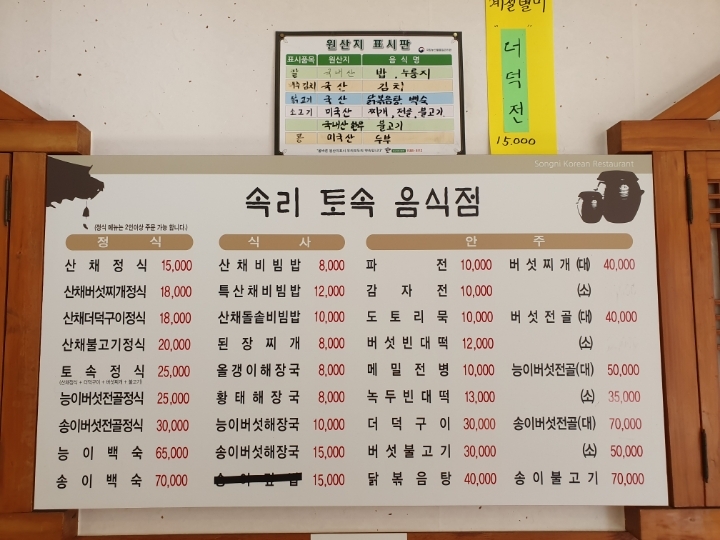 계절별미
더덕전
15,000
원산지 표시판
표시품목 원산지 음식명
쌀 국내산 밥, 누룽지
배추김치 국산 김치
닭고기 국산 닭볶음탕 백숙
소고기 미국산 찌개, 전골, 불고기
국내산 한우 불고기
콩 미국산 두부
Songni Korean Restaurant
속리 토속 음식점
(정식 메뉴는 2인이상 주문 가능 합니다.)
정식
산채정식 15,000
산채버섯찌개정식 18,000
산채더덕구이정식 18,000
산채불고기정식 20,000
토속정식 25,000
(산채정식 + 더덕구이 + 버섯찌개 + 불고기)
능이버섯전골정식 25,000
송이버섯전골정식 30,000
능이백숙 65,000
송이백숙 70,000
식사
산채비빔밥 8,000
특산채비빔밥 12,000
산채돌솥비빔밥 10,000
된장찌개 8,000
올갱이해장국 8,000
황태해장국 8,000
능이버섯해장국 10,000
송이버섯해장국 15,000
15,000
안주
파전 10,000 버섯찌개(대) 40,000
감자전 10,000 (소)
도토리묵 10,000 버섯전골(대) 40,000
버섯빈대떡 12,000 (소)
메밀전병 10,000 능이버섯전골(대) 50,000
녹두빈대떡 13,000 (소) 35,000
더덕구이 30,000 송이버섯전골(대) 70,000
버섯불고기 30,000 (소) 50,000
닭볶음탕 40,000 송이불고기 70,000